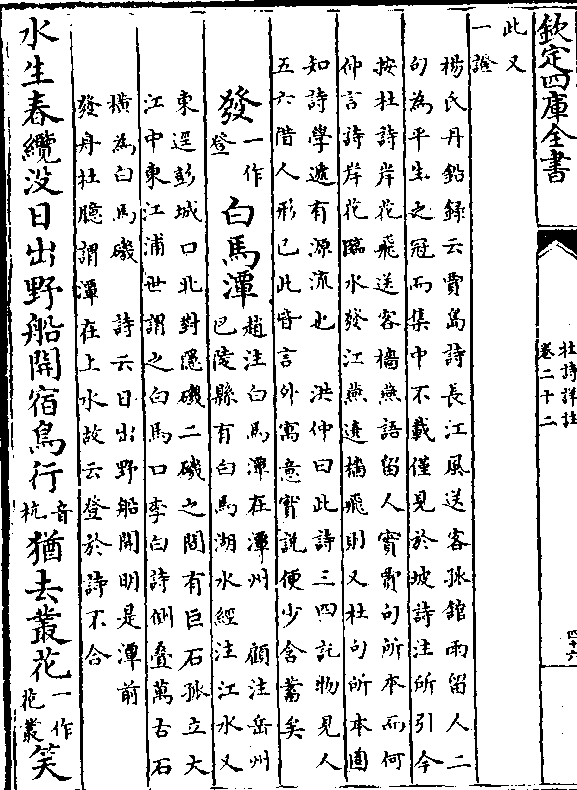 欽定四庫全書
杜詩詳註
卷二十二
四十六
此又
一證
楊氏丹鉛録云賈島詩長江風送客孤舘雨留人二
句為平生之冠而集中不載僅見於坡詩注所引今
按杜詩岸花飛送客檣燕語留人實賈句所本而何
仲言詩岸花臨水發江燕遶檣飛則又杜句所本固
知詩學遞有源流也 洪仲曰此詩三四託物見人
五六借人形已此皆言外寓意實説便少含蓄矣
發一作登白馬潭趙注白馬潭在潭州 顧注岳州巴陵縣有白馬湖水經注江水又
東逕彭城口北對隠磯二磯之間有巨石孤立大
江中東江浦世謂之白馬口李白詩側疊萬古石
橫為白馬磯 詩云日出野船開明是潭前
發舟杜臆謂潭在上水故云登於詩不合
水生春纜没日出野船開宿鳥行音杭猶去叢花一作花叢笑